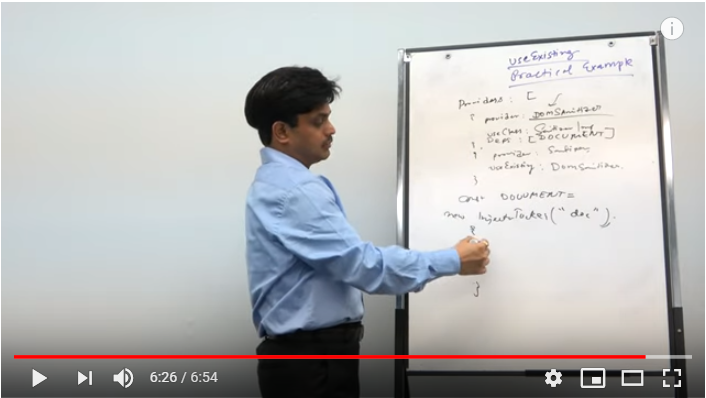 useExisting
Practical Example
Providers : [
{ provider: DOMSanitizer
useClass: Sanitizer Imp
} deps : [DOCUMENT]
{ provide: Sanitizer
useExisting: DomSanitizer
}
const DOCUMENT =
new Inject Token ("doc").
{
}
6:26 / 6:54